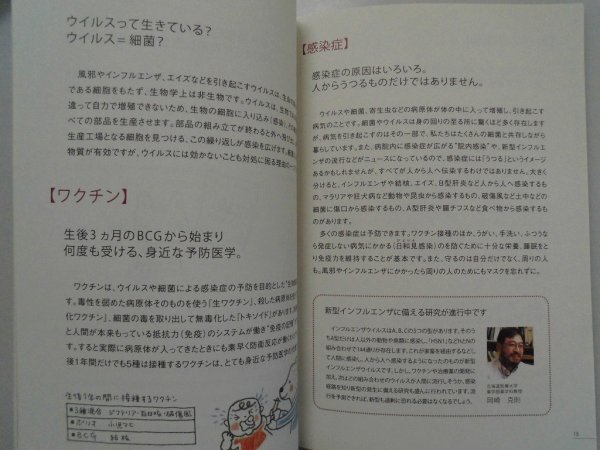 ウイルスって生きている?
ウイルス=細菌?
風邪やインフルエンザ、エイズなどを引き起こすウイルスは、生命
である細胞をもたず、生物学上は非生物です。ウイルスは、生物
違って自力で増殖できないため、生物の細胞に入り込み(感染)、その
べての部品を生産させます。部品の組み立てが終わると外へ飛び
生産工場となる細胞を見つける、この繰り返しが感染を広げます。細
物質が有効ですが、ウイルスには効かないことも対処に困る理由の一
【ワクチン】
生後3ヵ月のBCGから始まり
何度も受ける、身近な予防医学。
ワクチンは、ウイルスや細菌による感染症の予防を目的とした“生物
す。毒性を弱めた病原体そのものを使う「生ワクチン」、殺した病原体
化ワクチン」、細菌の毒を取り出して無毒化した「トキソイド」があり
と人間が本来もっている抵抗力(免疫)のシステムが働き“免疫の記憶
す。すると実際に病原体が入ってきたときにも素早く防衛反応が働
後1年間だけでも5種は接種するワクチンは、とても身近な予防医学の
生後1年の間に接種するワクチン
●3種混合 ジフテリア・百日咳・破傷風
●ポリオ 小児マヒ
●BCG 結核
【感染症】
感染症の原因はいろいろ。
人からうつるものだけではありません。
ウイルスや細菌、寄生虫などの病原体が体の中に入って増殖し、引き起こす
病気のことです。細菌やウイルスは身の回りの至る所に驚くほど多く存在します
が、病気を引き起こすのはその一部で、私たちはたくさんの細菌と共存しながら
暮らしています。また、病院内に感染症が広がる“院内感染”や、新型インフルエン
ザの流行などがニュースになっているので、感染症には「うつる」というイメージ
があるかもしれませんが、すべてが人から人へ伝染するわけではありません。大きく
分けると、インフルエンザや結核、エイズ、B型肝炎など人から人へ感染するも
の、マラリアや狂犬病など動物や昆虫から感染するもの、破傷風など土中などの
細菌に傷口から感染するもの、A型肝炎や腸チフスなど食べ物から感染するもの
があります。
多くの感染症は予防できます。ワクチン接種のほか、うがい、手洗い、ふつうな
ら発症しない病気にかかる(日和見感染)のを防ぐために十分な栄養、睡眠をと
り免疫力を維持することが基本です。また、守るのは自分だけでなく、周りの人
も。風邪やインフルエンザにかかったら周りの人のためにもマスクを忘れずに。
新型インフルエンザに備える研究が進行中です
インフルエンザウイルスはA、B、Cの3つの型があります。その
うちA型だけは人以外の動物や鳥類に感染し、「H5N1」などHとNの
組み合わせで144通りが存在します。これが家畜を経由するなどし
て人間に感染し、人から人へ感染するようになったものが新型イン
フルエンザウイルスです。しかし、ワクチンや治療薬の開発に加
15